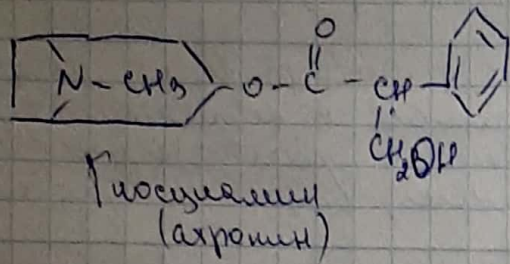 O
N - CH3 - O - C - CH -
CH2OH
Гиосциамин
(атропин)